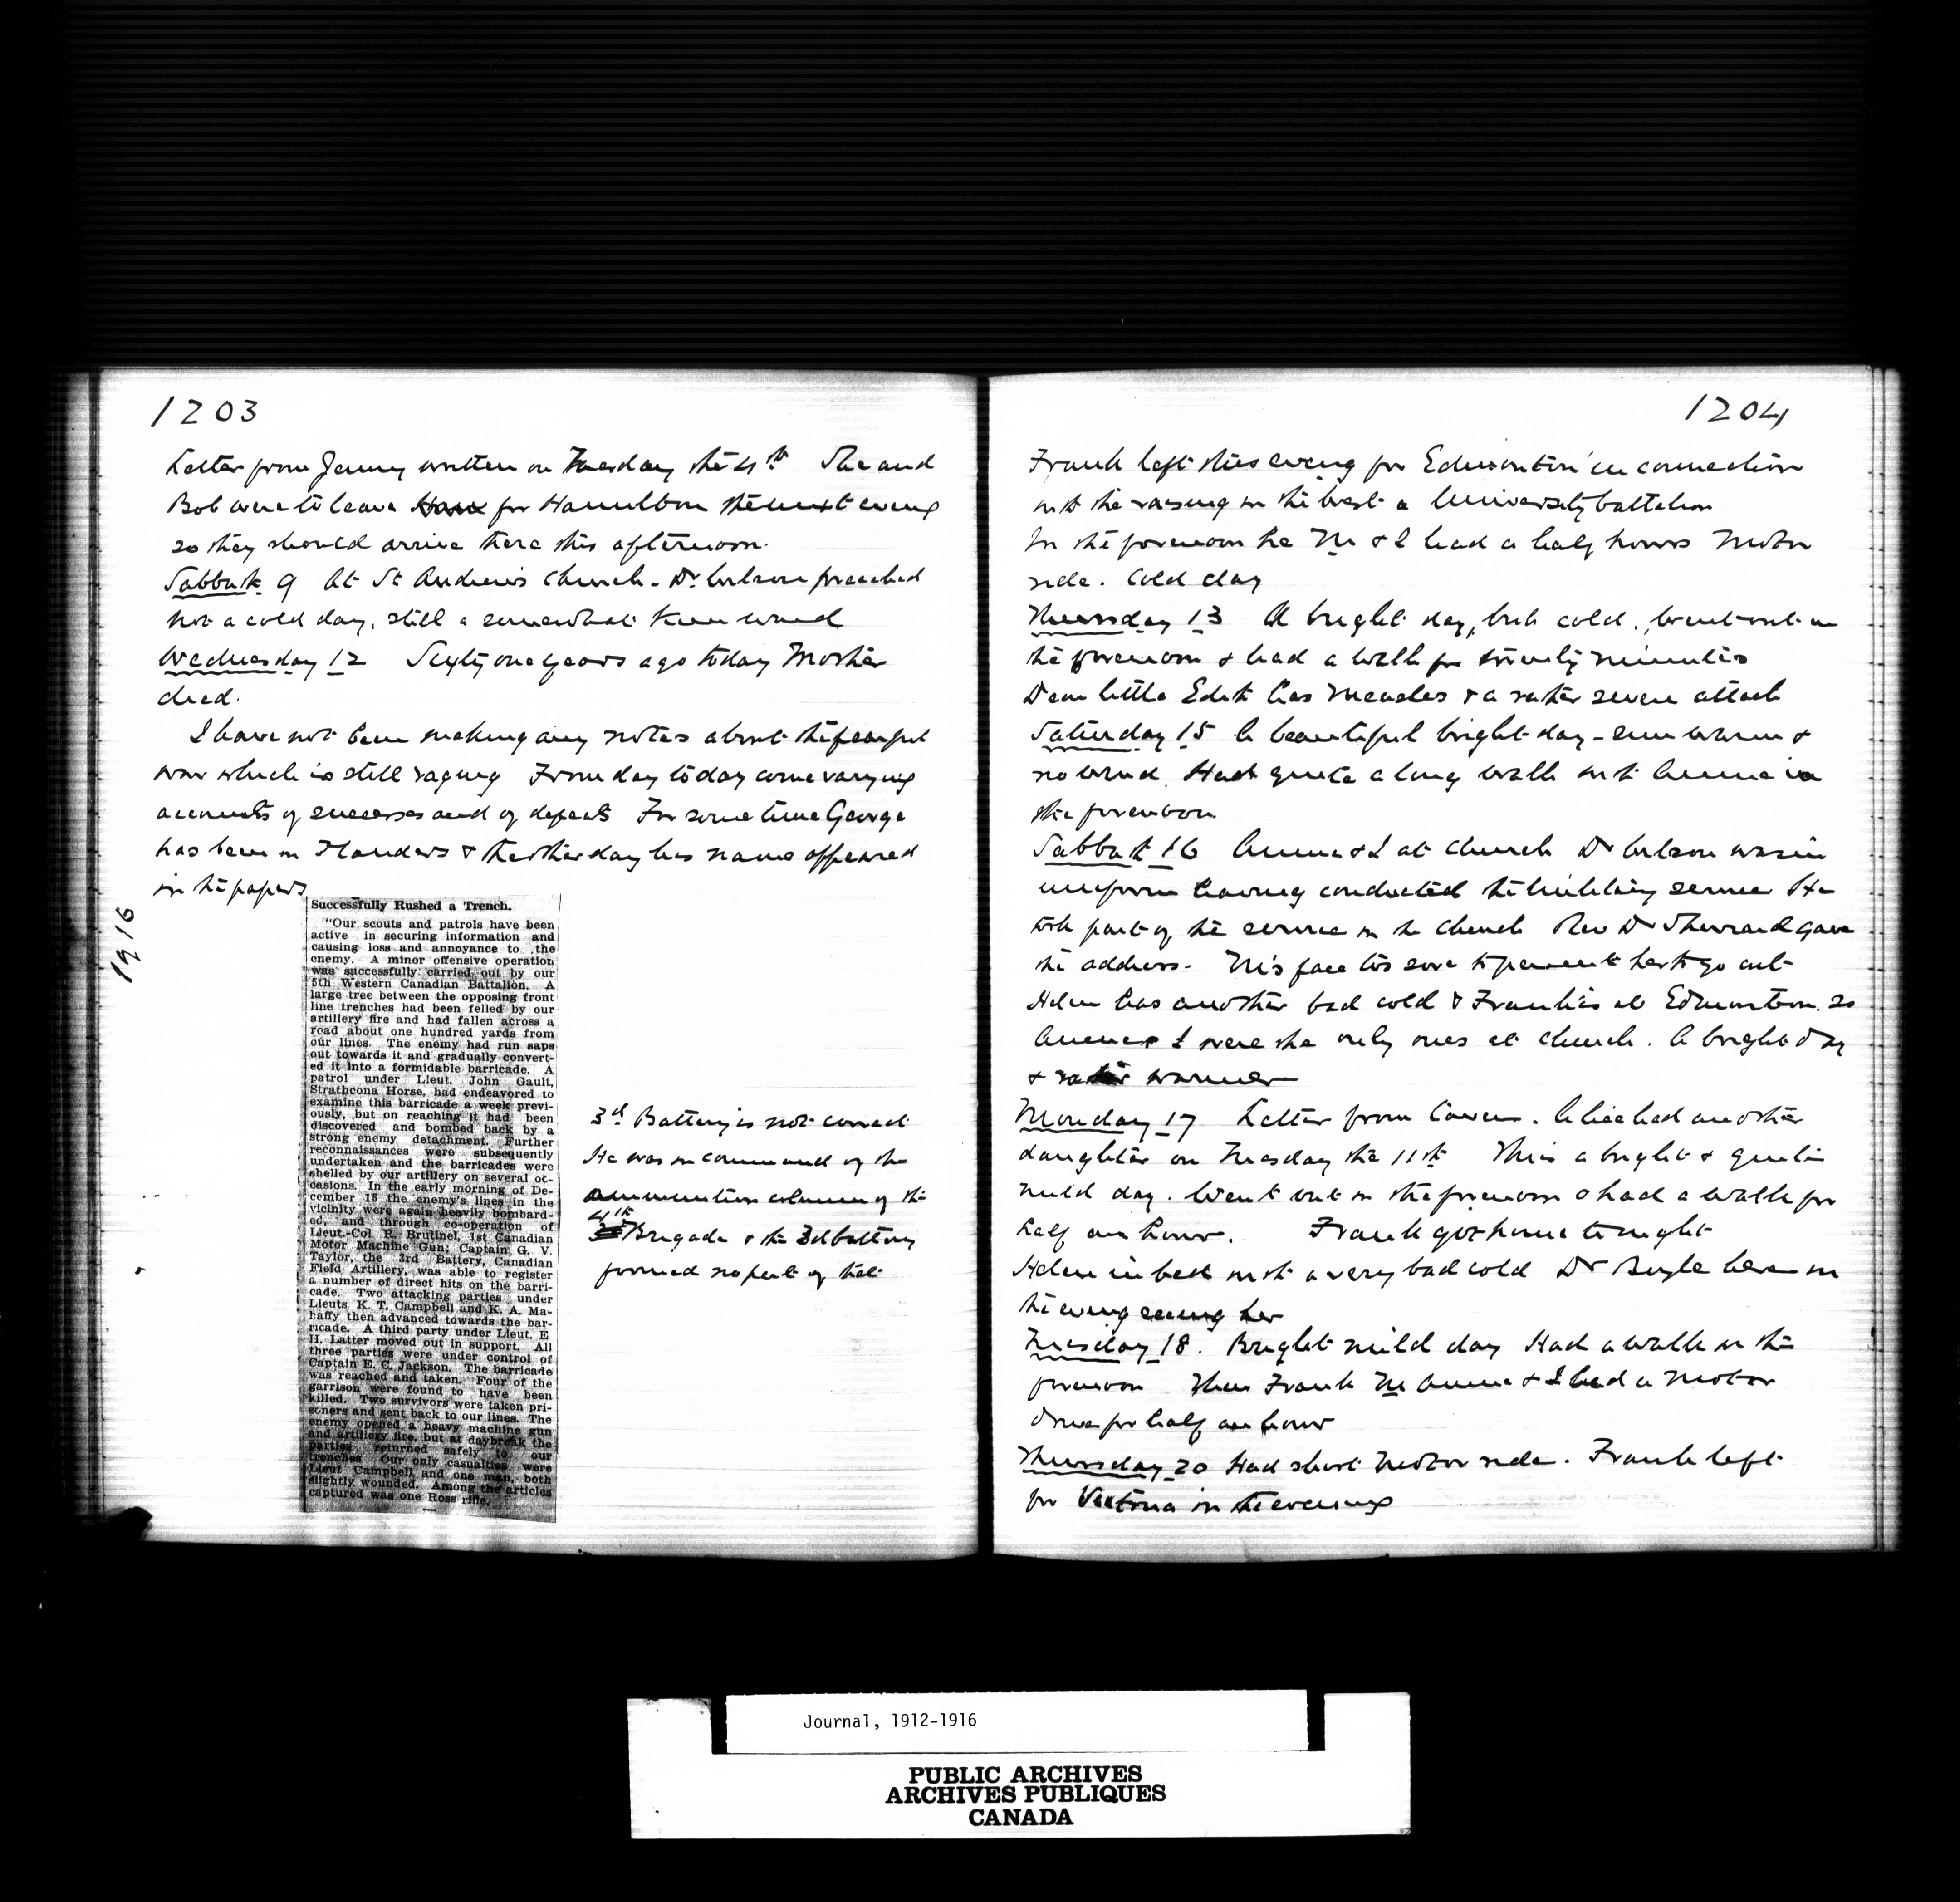 1203
Letter from Jenny written on Tuesday the 4th She and
Bob were to leave for Hamilton the next evening
so they should arrive there this afternoon.
Sabbath 9 At St Andrew's Church - Dr Wilson preached
Not a cold day, still a somewhat keen wind
Wednesday 12 Sixty one years ago today Mother
died.
I have not been making any notes about the fearful
war which is still raging From day to day come varying
accounts of successes and of defeats For some time George
has been in Flanders & the other day his name appeared
in the papers
1916
Successfully Rushed a Trench.
"Our scouts and patrols have been
active in securing information and
causing loss and annoyance to the
enemy. A minor offensive operation
was successfully carried out by our
5th Western Canadian Battalion. A
large tree between the opposing front
line trenches had been felled by our
artillery fire and had fallen across a
road about one hundred yards from
our lines. The enemy had run saps
out towards it and gradually convert-
ed it into a formidable barricade. A
patrol under Lieut. John Gault,
Strathcona Horse, had endeavored to
examine this barricade a week previ-
ously, but on reaching it had been
discovered and bombed back by a
strong enemy detachment. Further
reconnaissances were subsequently
undertaken and the barricades were
shelled by our artillery on several oc-
casions. In the early morning of De-
cember 15 the enemy's lines in the
vicinity were again heavily bombard-
ed, and through co-operation of
Lieut.-Col R. Brutinel, 1st Canadian
Motor Machine Gun; Captain G. V.
Taylor, the 3rd Battery, Canadian
Field Artillery, was able to register
a number of direct hits on the barri-
cade. Two attacking parties under
Lieuts K. T. Campbell and K. A. Ma-
haffy then advanced towards the bar-
ricade. A third party under Lieut. E
H. Latter moved out in support. All
three parties were under control of
Captain E. C. Jackson. The barricade
was reached and taken. Four of the
garrison were found to have been
killed. Two survivors were taken pri-
soners and sent back to our lines. The
enemy opened a heavy machine gun
and artillery fire, but at daybreak the
parties returned safely to our
trenches Our only casualties were
Lieut Campbell and one man, both
slightly wounded. Among the articles
captured was one Ross rifle.
3d Battery is not correct
He was in command of the
ammunition column of the
4th Brigade & the 3d battery
formed no part of that
1204
Frank left this eveng for Edmonton in connection
with the raising in the West a University battalion
In the forenoon he M & I had a half hours motor
ride. Cold day
Thursday 13 A bright day, but cold. Went out in
the forenoon & had a walk for twenty minutes
Dear little Edith has measles & a rather severe attack
Saturday 15 A beautiful bright day - sun warm &
no wind Had quite a long walk with Annie in
the forenoon
Sabbath 16 Annie & I at church Dr Wilson was in
uniform having conducted the military service He
took part of the service in the church Rev Dr Sherrard gave
the address. M's face too sore to permit her to go out
Helen has another bad cold & Frank is at Edmonton. so
Annie & I were the only ones at church. A bright day
& rather warmer
Monday 17 Letter from Coven. Alice had another
daughter on Tuesday the 11th This a bright & quite
mild day. Went out in the forenoon & had a walk for
half an hour. Frank got home tonight
Helen in bed with a very bad cold Dr Bugle here in
the eveng seeing her
Tuesday 18. Bright mild day Had a walk in the
forenoon Then Frank M Annie & I had a motor
drive for half an hour
Thursday 20 Had short motor ride. Frank left
for Victoria in the evening
Journal, 1912-1916
PUBLIC ARCHIVES
ARCHIVES PUBLIQUES
CANADA